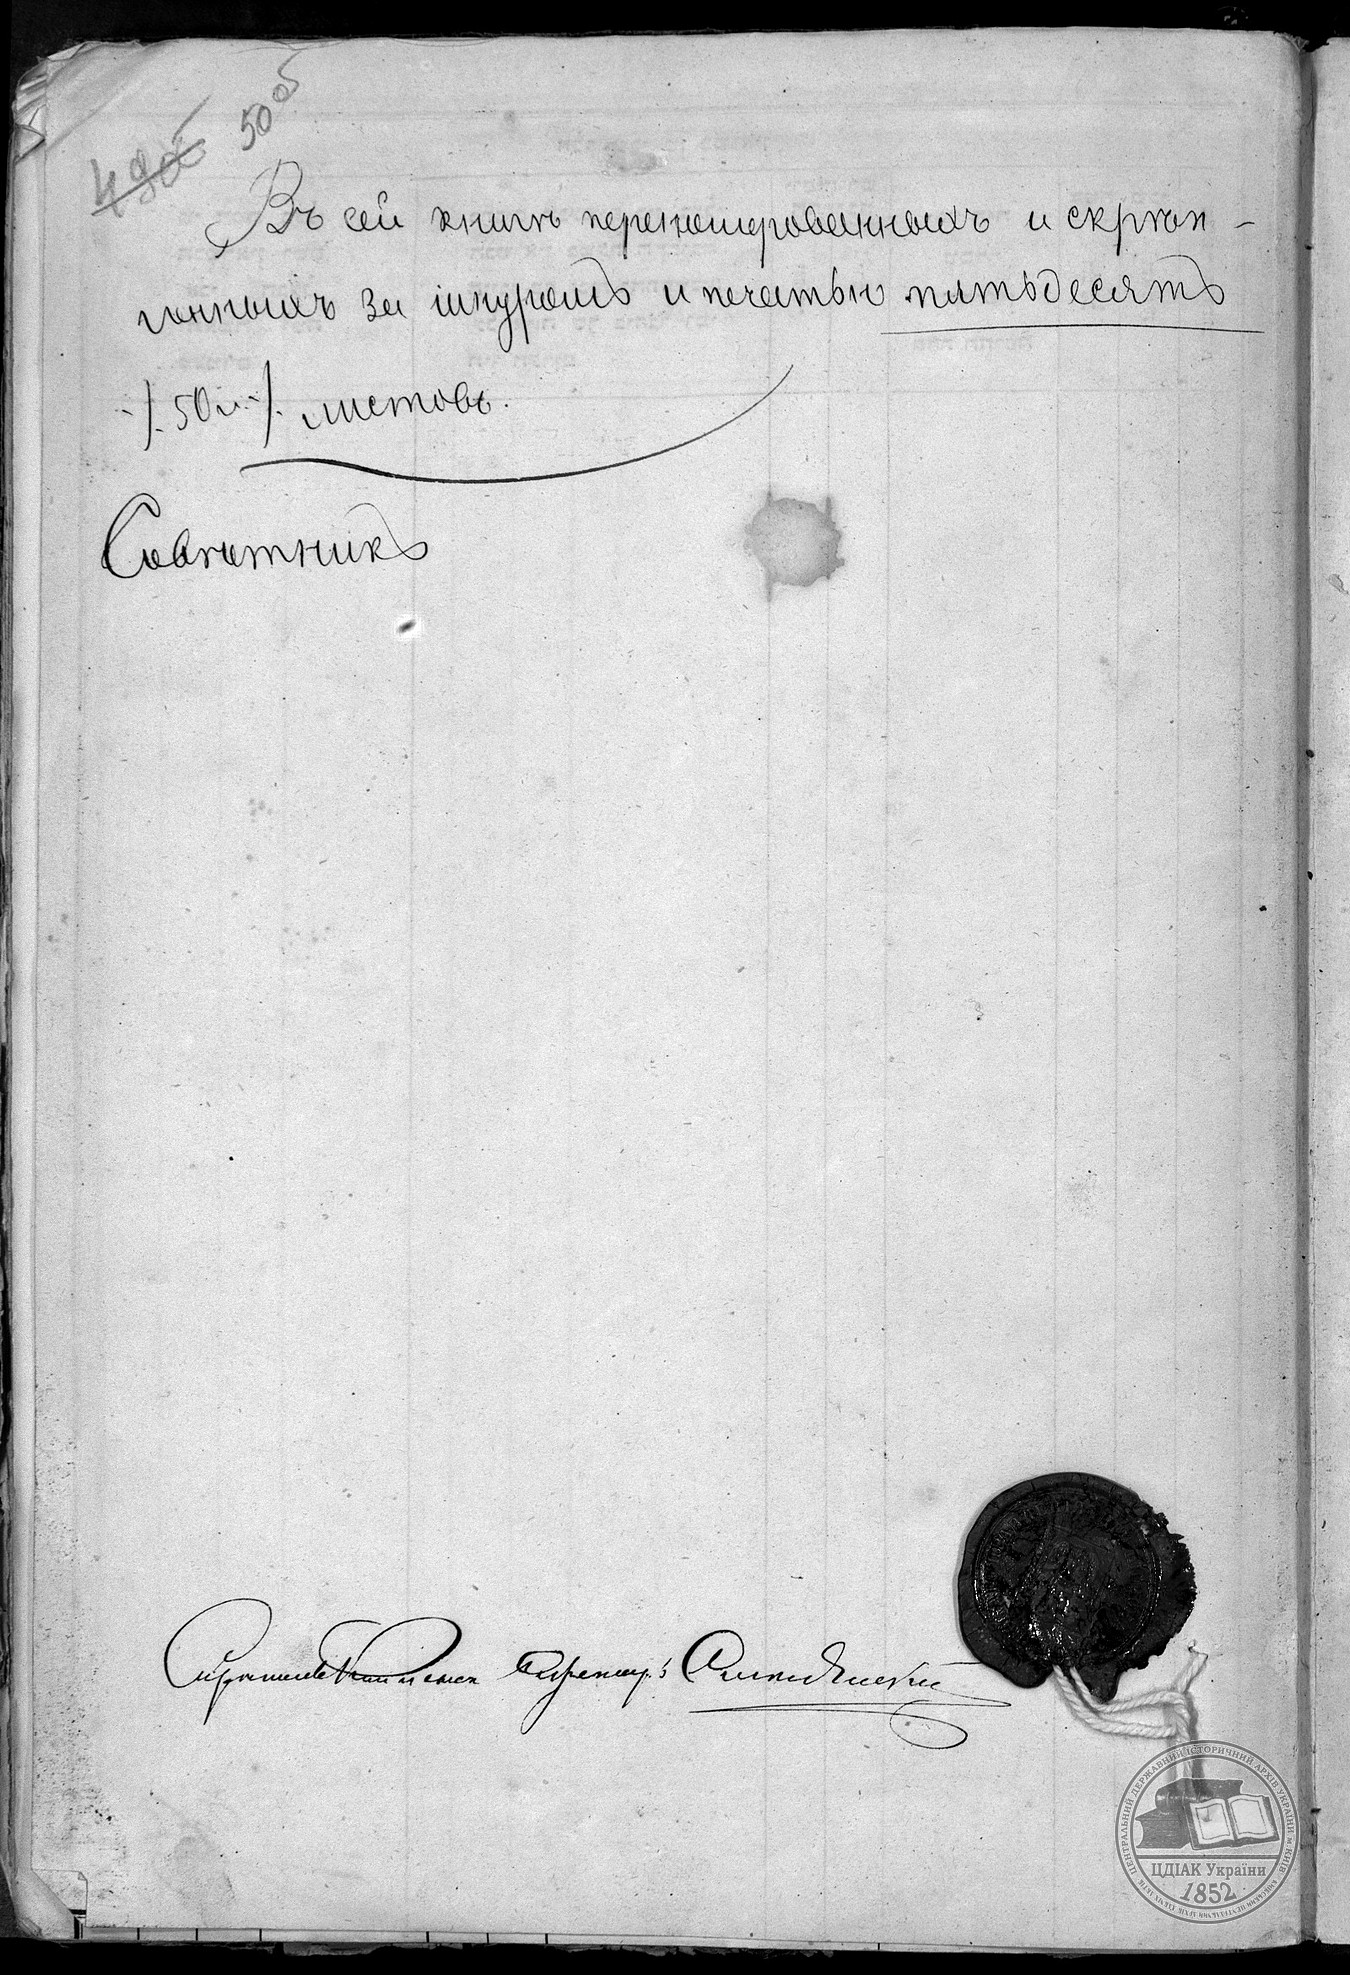 49об 50об
Въ сей книгѣ перенумерованныхъ и скрѣп-
ленныхъ за шнуромъ и печатью пятьдесятъ
-/. 50 л. -/. листовъ.
Совѣтникъ
ЦЕНТРАЛЬНИЙ ДЕРЖАВНИЙ ІСТОРИЧНИЙ АРХІВ УКРАЇНИ м. КИЇВ
ЦДІАК України
1852